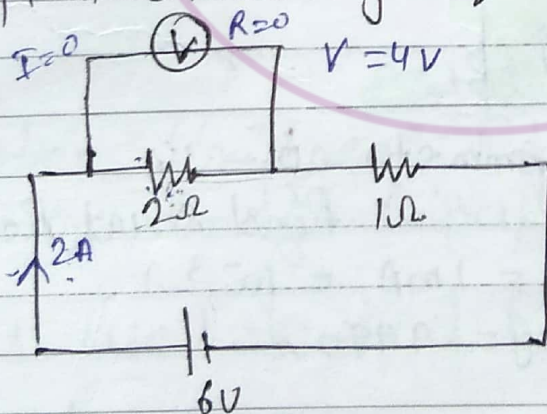 I=0
V
R=0
V = 4V
2Ω
1Ω
2A
6V